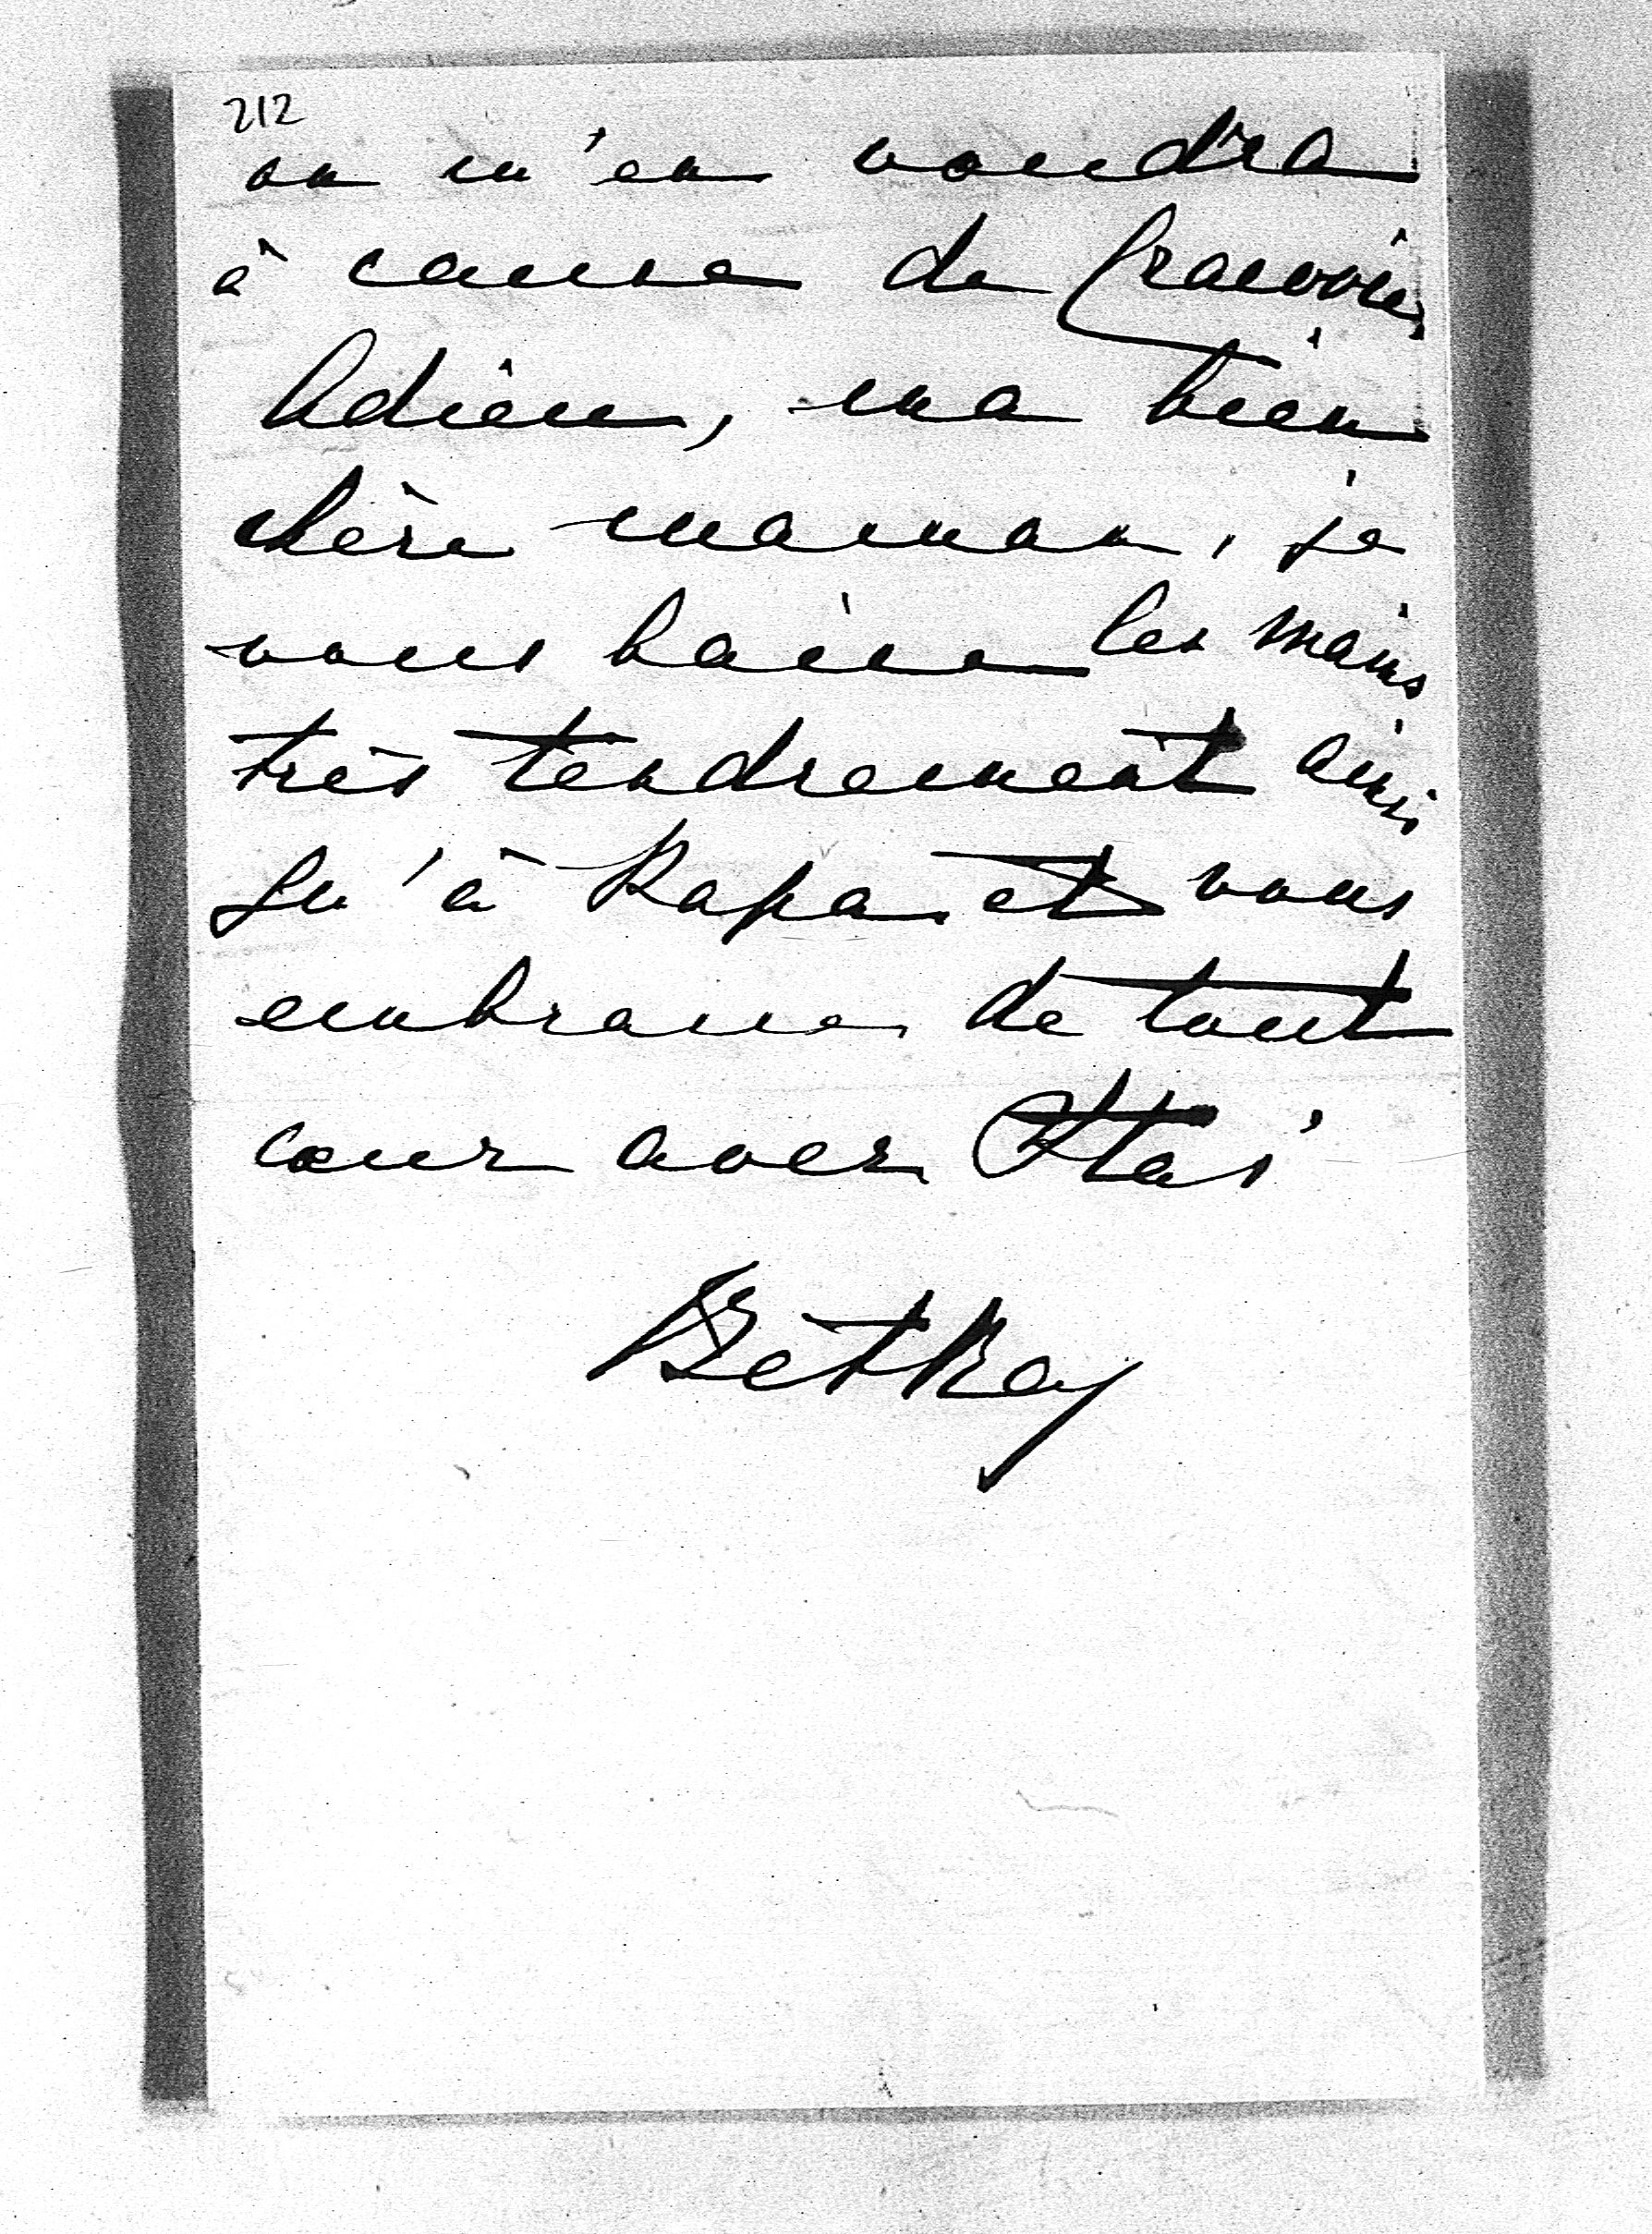 212
on m'en voudra
à cause de François
Adieu, ma bien
chère maman, je
vous baise les mains
très tendrement ainsi
qu'à Papa et vous
embrasse de tout
cœur avec Stas
BetKa